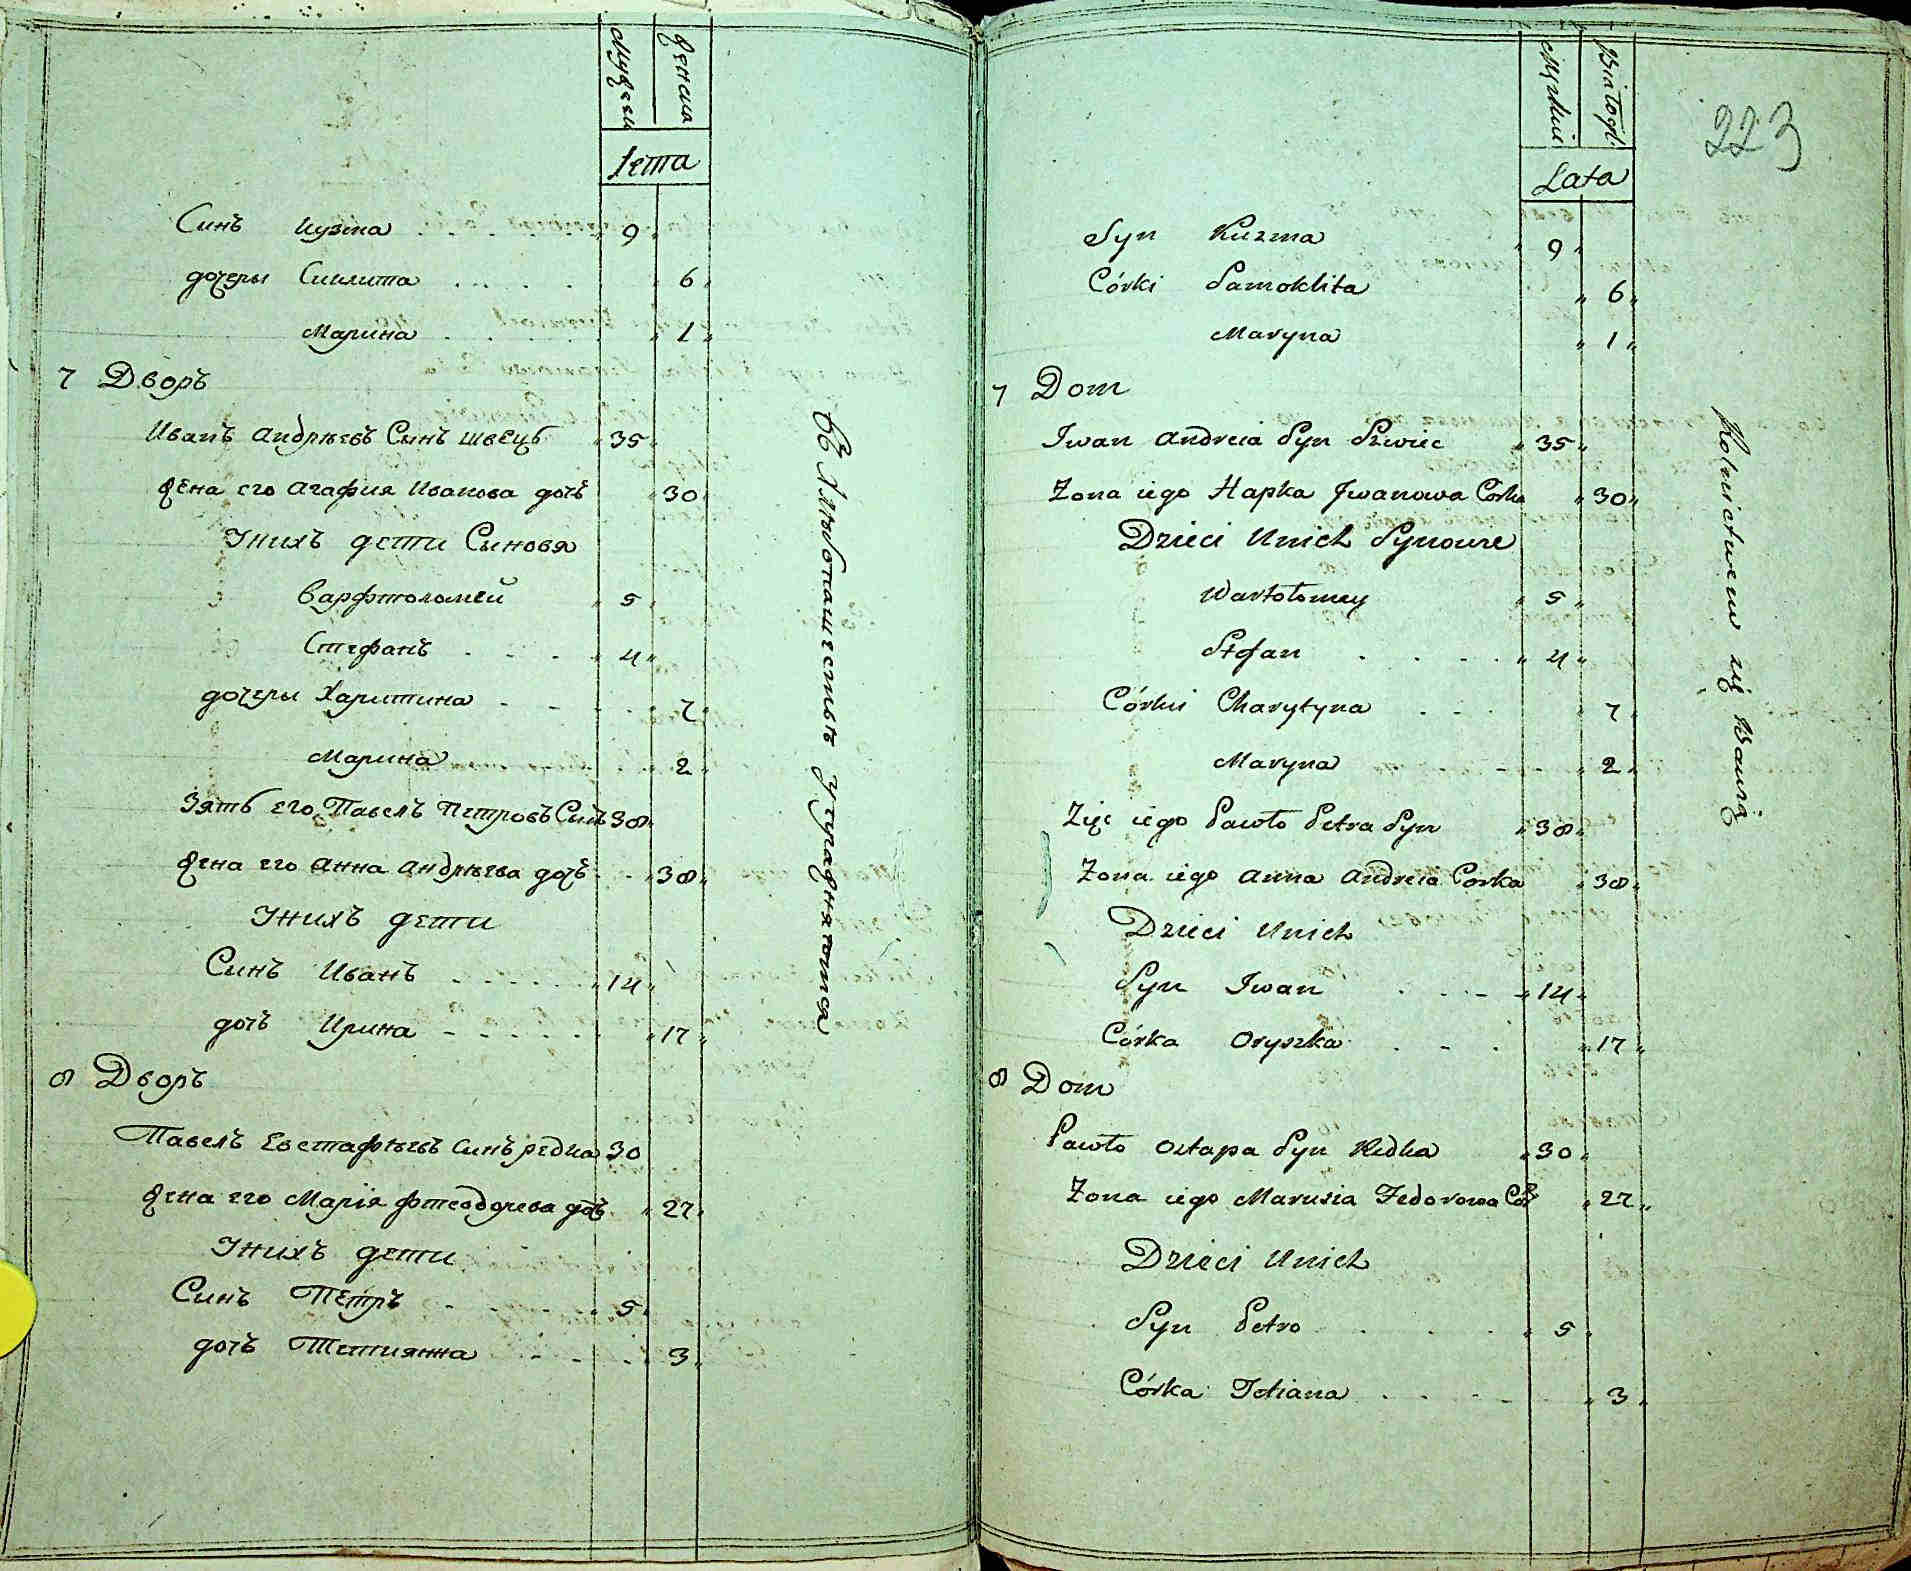 Мужеск
Женска
лета
Синъ Кузма 9
дочеры Сиклита 6
Марина 1
7 Дворъ
Иванъ Андрѣевъ Синъ швецъ 35
жена его Агафия Иванова дочь 30
Унихъ дети Сыновя
Варфтоломей 5
Стефанъ 4
дочеры Харитина 7
Марина 2
Зять его Павелъ Петровъ Синъ 38
жена его Анна Андрѣева дочъ 38
Унихъ дети
Синъ Иванъ 14
дочъ Ирина 17
8 Дворъ
Павелъ Евстафѣевъ синъ редка 30
жена его Марія Фтеодорева дочъ 27
Унихъ дети
Синъ Петръ 5
дочъ Тетиянна 3
въ хлѣбопашествѣ упражняются
Męzkiei
Białogł.
Lata
223
Syn Kuzma 9
Córki Samoklita 6
Maryna 1
7 Dom
Iwan Andreia Syn Szwiec 35
Zona iego Hapka Iwanowa Córka 30
Dzieci Unich Synowie
Wartołomey 5
Stefan 4
Córki Charytyna 7
Maryna 2
Zięc iego Pawło Petra Syn 38
Zona iego Anna Andreia Corka 38
Dzieci Unich
Syn Iwan 14
Córka Oryszka 17
8 Dom
Pawło Ostapa Syn Redka 30
Zona iego Marusia Fedorowa Cór 27
Dzieci Unich
Syn Petro 5
Córka Tetiana 3
Rolnictwem się bawią